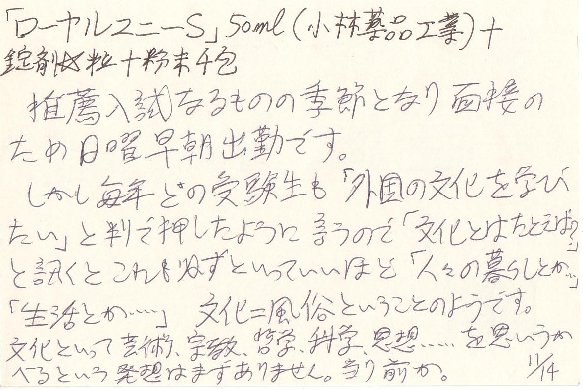 「ローヤルユニーS」50ml(小林薬品工業)+
錠剤12粒+粉末1包
推薦入試なるものの季節となり面接の
ため日曜早朝出勤です。
しかし毎年どの受験生も「外国の文化を学び
たい」と判で押したように言うので「文化とはたとえば?」
と訊くとこれも必ずといっていいほど「人々の暮らしとか…」
「生活とか……」 文化=風俗ということのようです。
文化といって芸術、宗教、哲学、科学、思想……を思いうか
べるという発想はまずありません。当り前か。 11/14